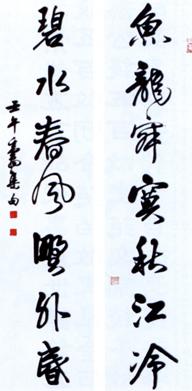 魚龍寂寞秋江冷
碧水春風野外昏
壬午集句